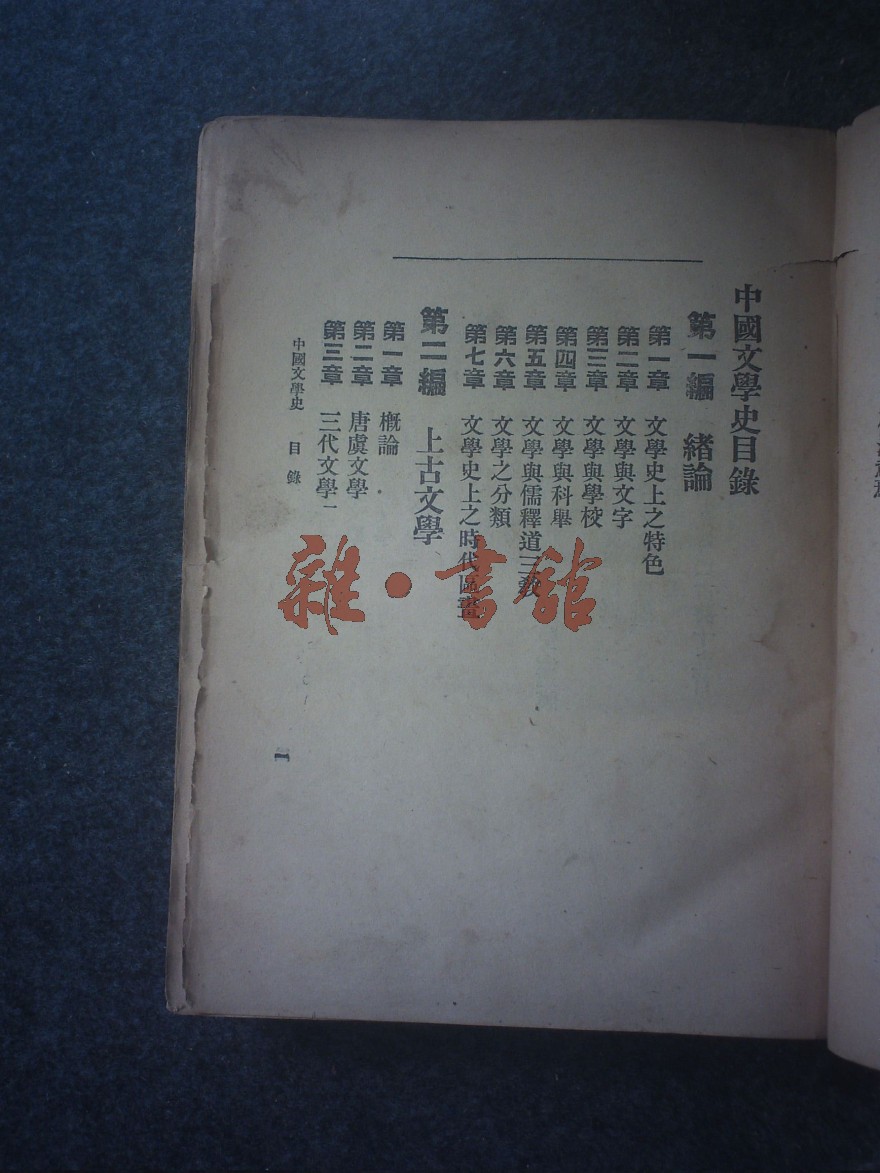 中國文學史目錄
第一編 緒論
第一章 文學史上之特色
第二章 文學與文字
第三章 文學與學校
第四章 文學與科舉
第五章 文學與儒釋道三教
第六章 文學之分類
第七章 文學史上之時代區畫
第二編 上古文學
第一章 概論
第二章 唐虞文學
第三章 三代文學
中國文學史 目錄
一
雜·書館